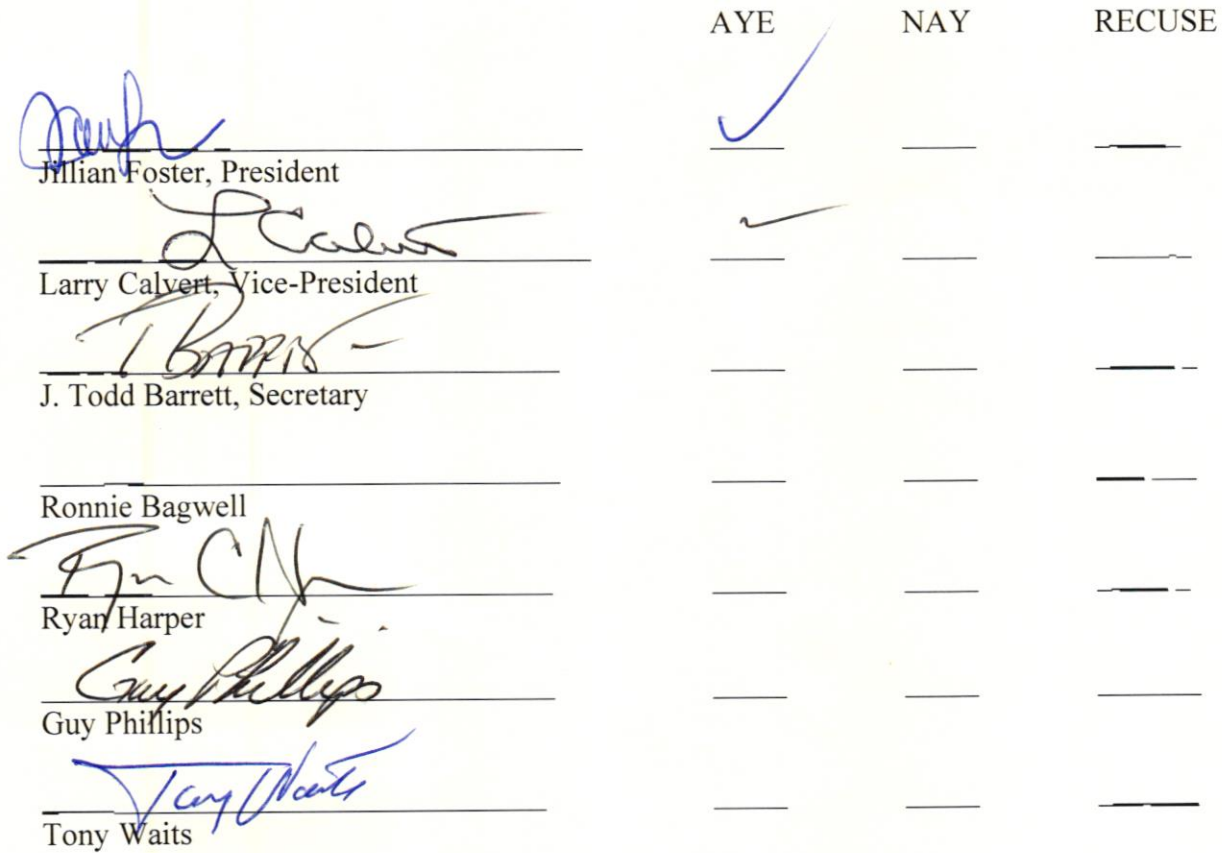 AYE NAY RECUSE
✓
Jillian Foster, President
L Calvert ✓
Larry Calvert, Vice-President
T Barrett
J. Todd Barrett, Secretary
Ronnie Bagwell
Ryan Harper
Guy Phillips
Guy Phillips
Tony Waits
Tony Waits